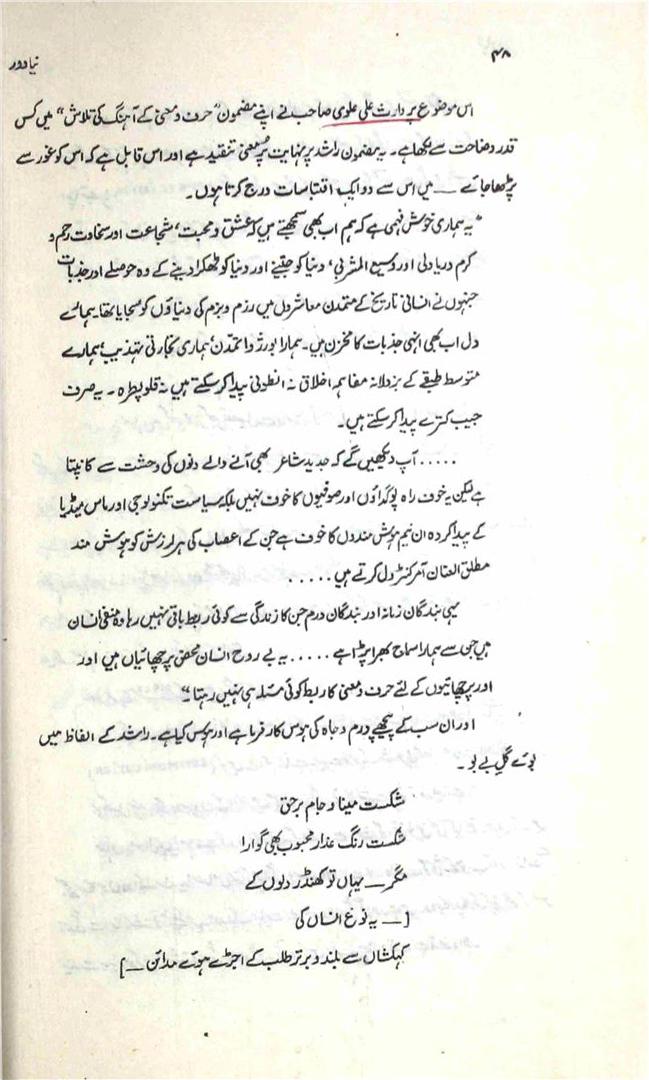 ۴۸
نیا دور
اس موضوع پر وارث علی علوی صاحب نے اپنے مضمون "حرف و معنیٰ کے آہنگ کی تلاش" میں کس
قدر وضاحت سے لکھا ہے۔ یہ مضمون راشد پر نہایت پُرمعنی تنقید ہے اور اس قابل ہے کہ اس کو غور سے
پڑھا جائے ـــ میں اس سے دو ایک اقتباسات درج کرتا ہوں۔
"یہ ہماری خوش فہمی ہے کہ ہم اب بھی سمجھتے ہیں کہ عشق و محبت، شجاعت اور سخاوت رحم و
کرم دریا دلی اور وسیع المشربی، دنیا کو جیتنے اور دنیا کو ٹھکرا دینے کے وہ حوصلے اور جذبات
جنہوں نے انسانی تاریخ کے متمدن معاشروں میں رزم و بزم کی دنیاؤں کو سجایا تھا۔ ہمارے
دل اب بھی انہی جذبات کا مخزن ہیں۔ ہمارا بورژوا تمدن، ہماری تجارتی تہذیب، ہمارے
متوسط طبقے کے بزدلانہ مفاہم اخلاق نہ انطونی پیدا کر سکتے ہیں نہ قلوپطرہ۔ یہ صرف
جیب کترے پیدا کر سکتے ہیں۔
..... آپ دیکھیں گے کہ جدید شاعر بھی آنے والے دنوں کی وحشت سے کانپتا
ہے لیکن یہ خوف راہ پو گداؤں اور صوفیوں کا خوف نہیں بلکہ سیاست تکنولوجی اور ماس میڈیا
کے پیدا کردہ ان نیم ہوش مندوں کا خوف ہے جن کے اعصاب کی ہر لرزش کو ہوش مند
مطلق العنان آمر کنٹرول کرتے ہیں .....
یہی بندگان زمانہ اور بندگان درم جن کا زندگی سے کوئی ربط باقی نہیں رہا وہ منفی انسان
ہیں جن سے ہمارا سماج بھرا پڑا ہے ..... یہ بے روح انسان محض پرچھائیاں ہیں اور
اور پرچھائیوں کے لئے حرف و معنی کا ربط کوئی مسئلہ ہی نہیں رہتا۔"
اور ان سب کے پیچھے ورم و جاہ کی ہوس کارفرما ہے اور ہوس کیا ہے۔ راشد کے الفاظ میں
بوئے گلِ بے بو۔
شکست مینا و جام برحق
شکست رنگ عذار محبوب بھی گوارا
مگر ـــ یہاں تو کھنڈر دلوں کے
[ـــ یہ نوع انساں کی
کہکشاں سے بلند و برتر طلب کے اجڑے ہوئے مدائن ـــ]